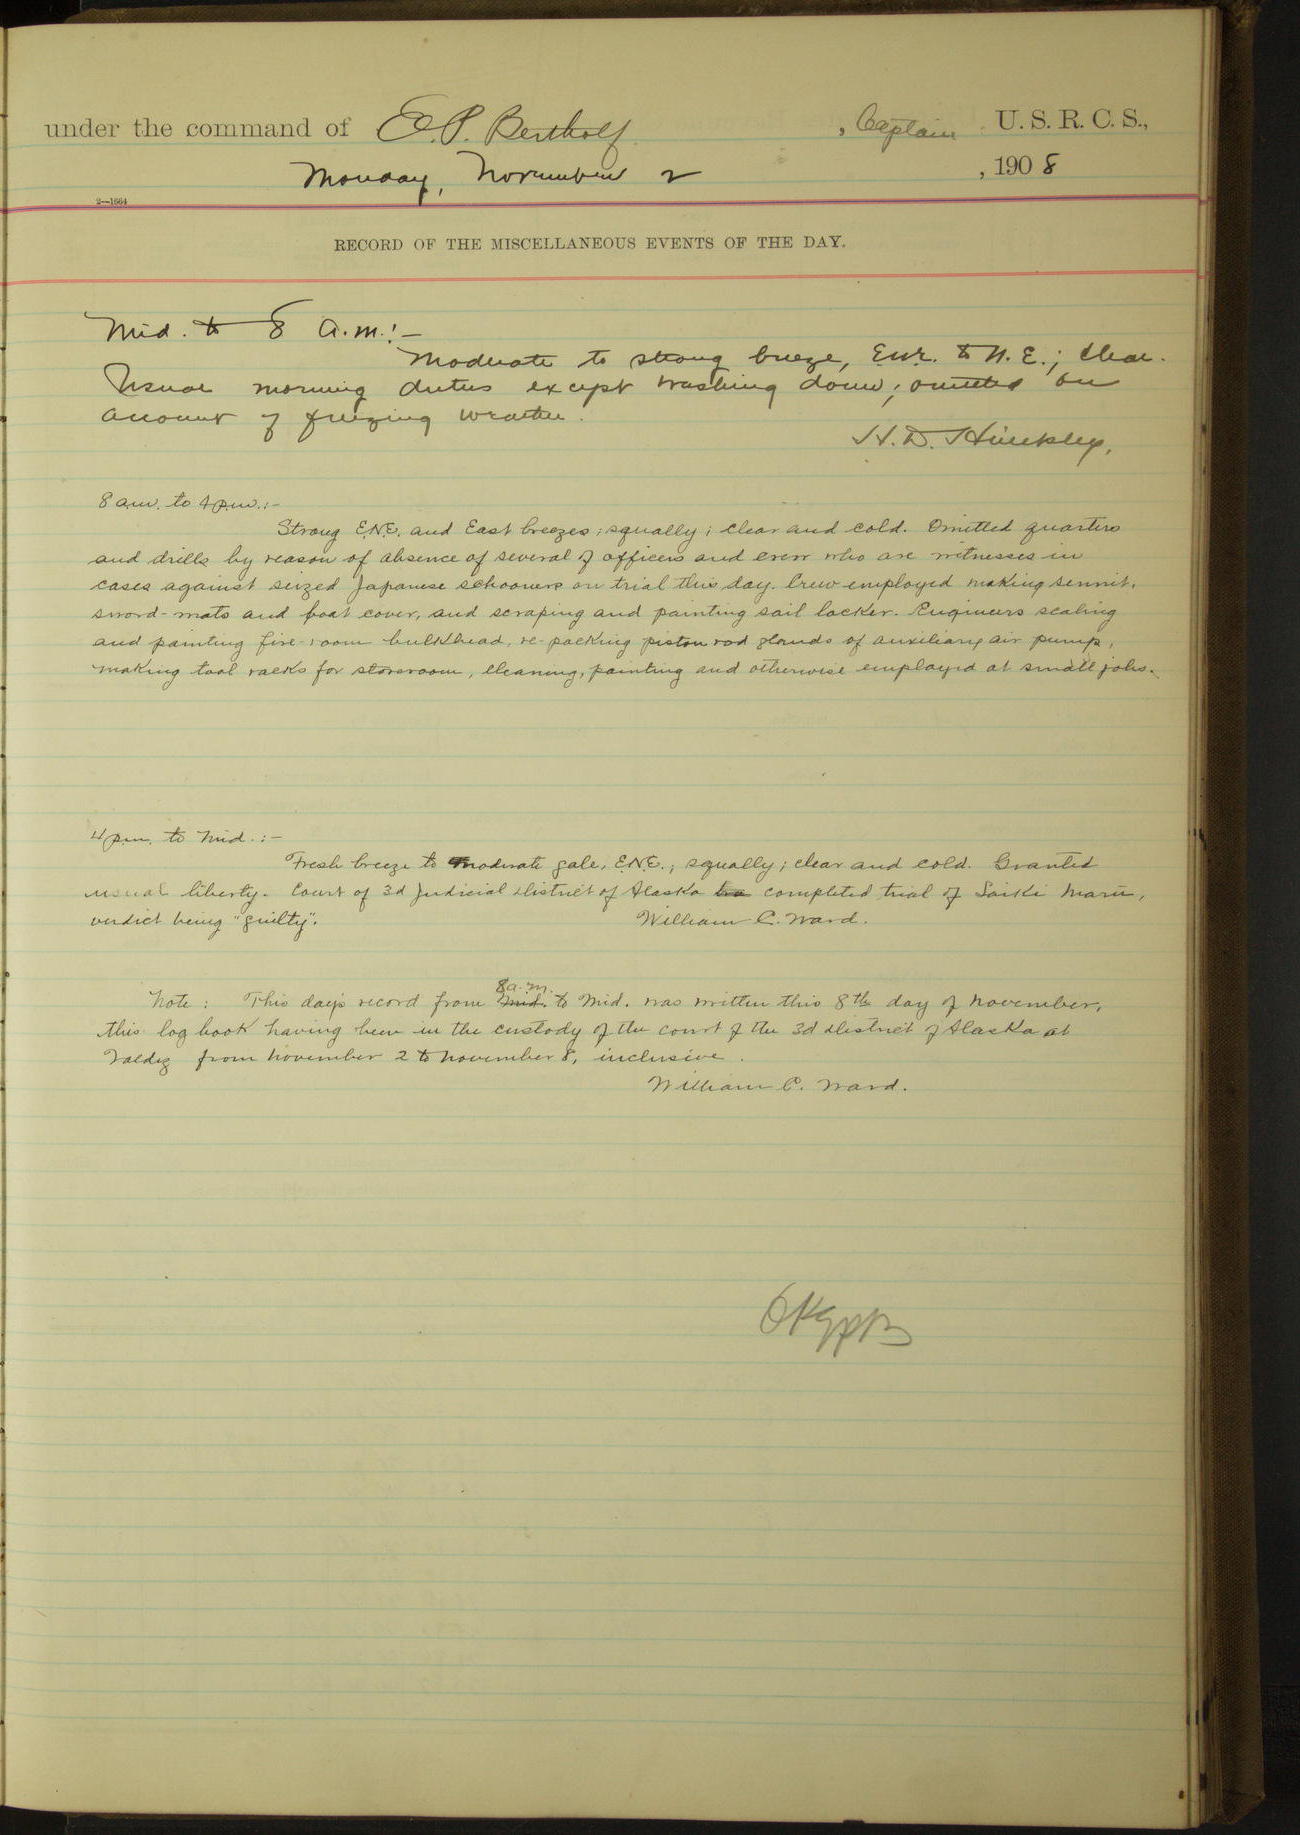 under the command of E. P. Bertholf, Captain U. S. R. C. S.,
Monday, November 2, 1908
2—1664
RECORD OF THE MISCELLANEOUS EVENTS OF THE DAY.
Mid. to 8 a.m.:—
Moderate to strong breeze, to N. E.; clear.
Usual morning duties except washing down; omitted on
account of freezing weather.
H. D. Hinckley.
8 a.m. to 4 p.m.:-
Strong E.N.E. and East breezes; squally; clear and cold. Omitted quarters
and drills by reason of absence of several of officers and crew who are witnesses in
cases against seized Japanese schooners on trial this day. Crew employed making sennit,
sword-mats and boat cover, and scraping and painting sail locker. Engineers scaling
and painting fire-room bulkhead, re-packing piston rod glands of auxiliary air pump,
making tool racks for storeroom, cleaning, painting and otherwise employed at small jobs.
4 p.m. to Mid.:—
Fresh breeze to moderate gale, E.N.E.; squally; clear and cold. Granted
usual liberty. Court of 3d Judicial district of Alaska completed trial of Saiki Maru,
verdict being "guilty".
William C. Ward.
8 a.m.
Note: This day's record from Mid. to Mid. was written this 8th day of November,
this log book having been in the custody of the court of the 3d district of Alaska at
Valdez from November 2 to November 8, inclusive.
William C. Ward.
OK EPB